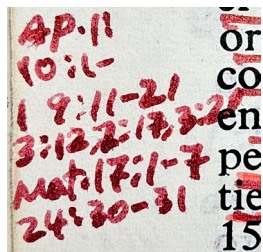 Ap. 11
10:1-
1 9:11-21
3:12; 2:17; 3:21
Mat. 17:1-7
24:30-31
or
co
en
pe
tie
15